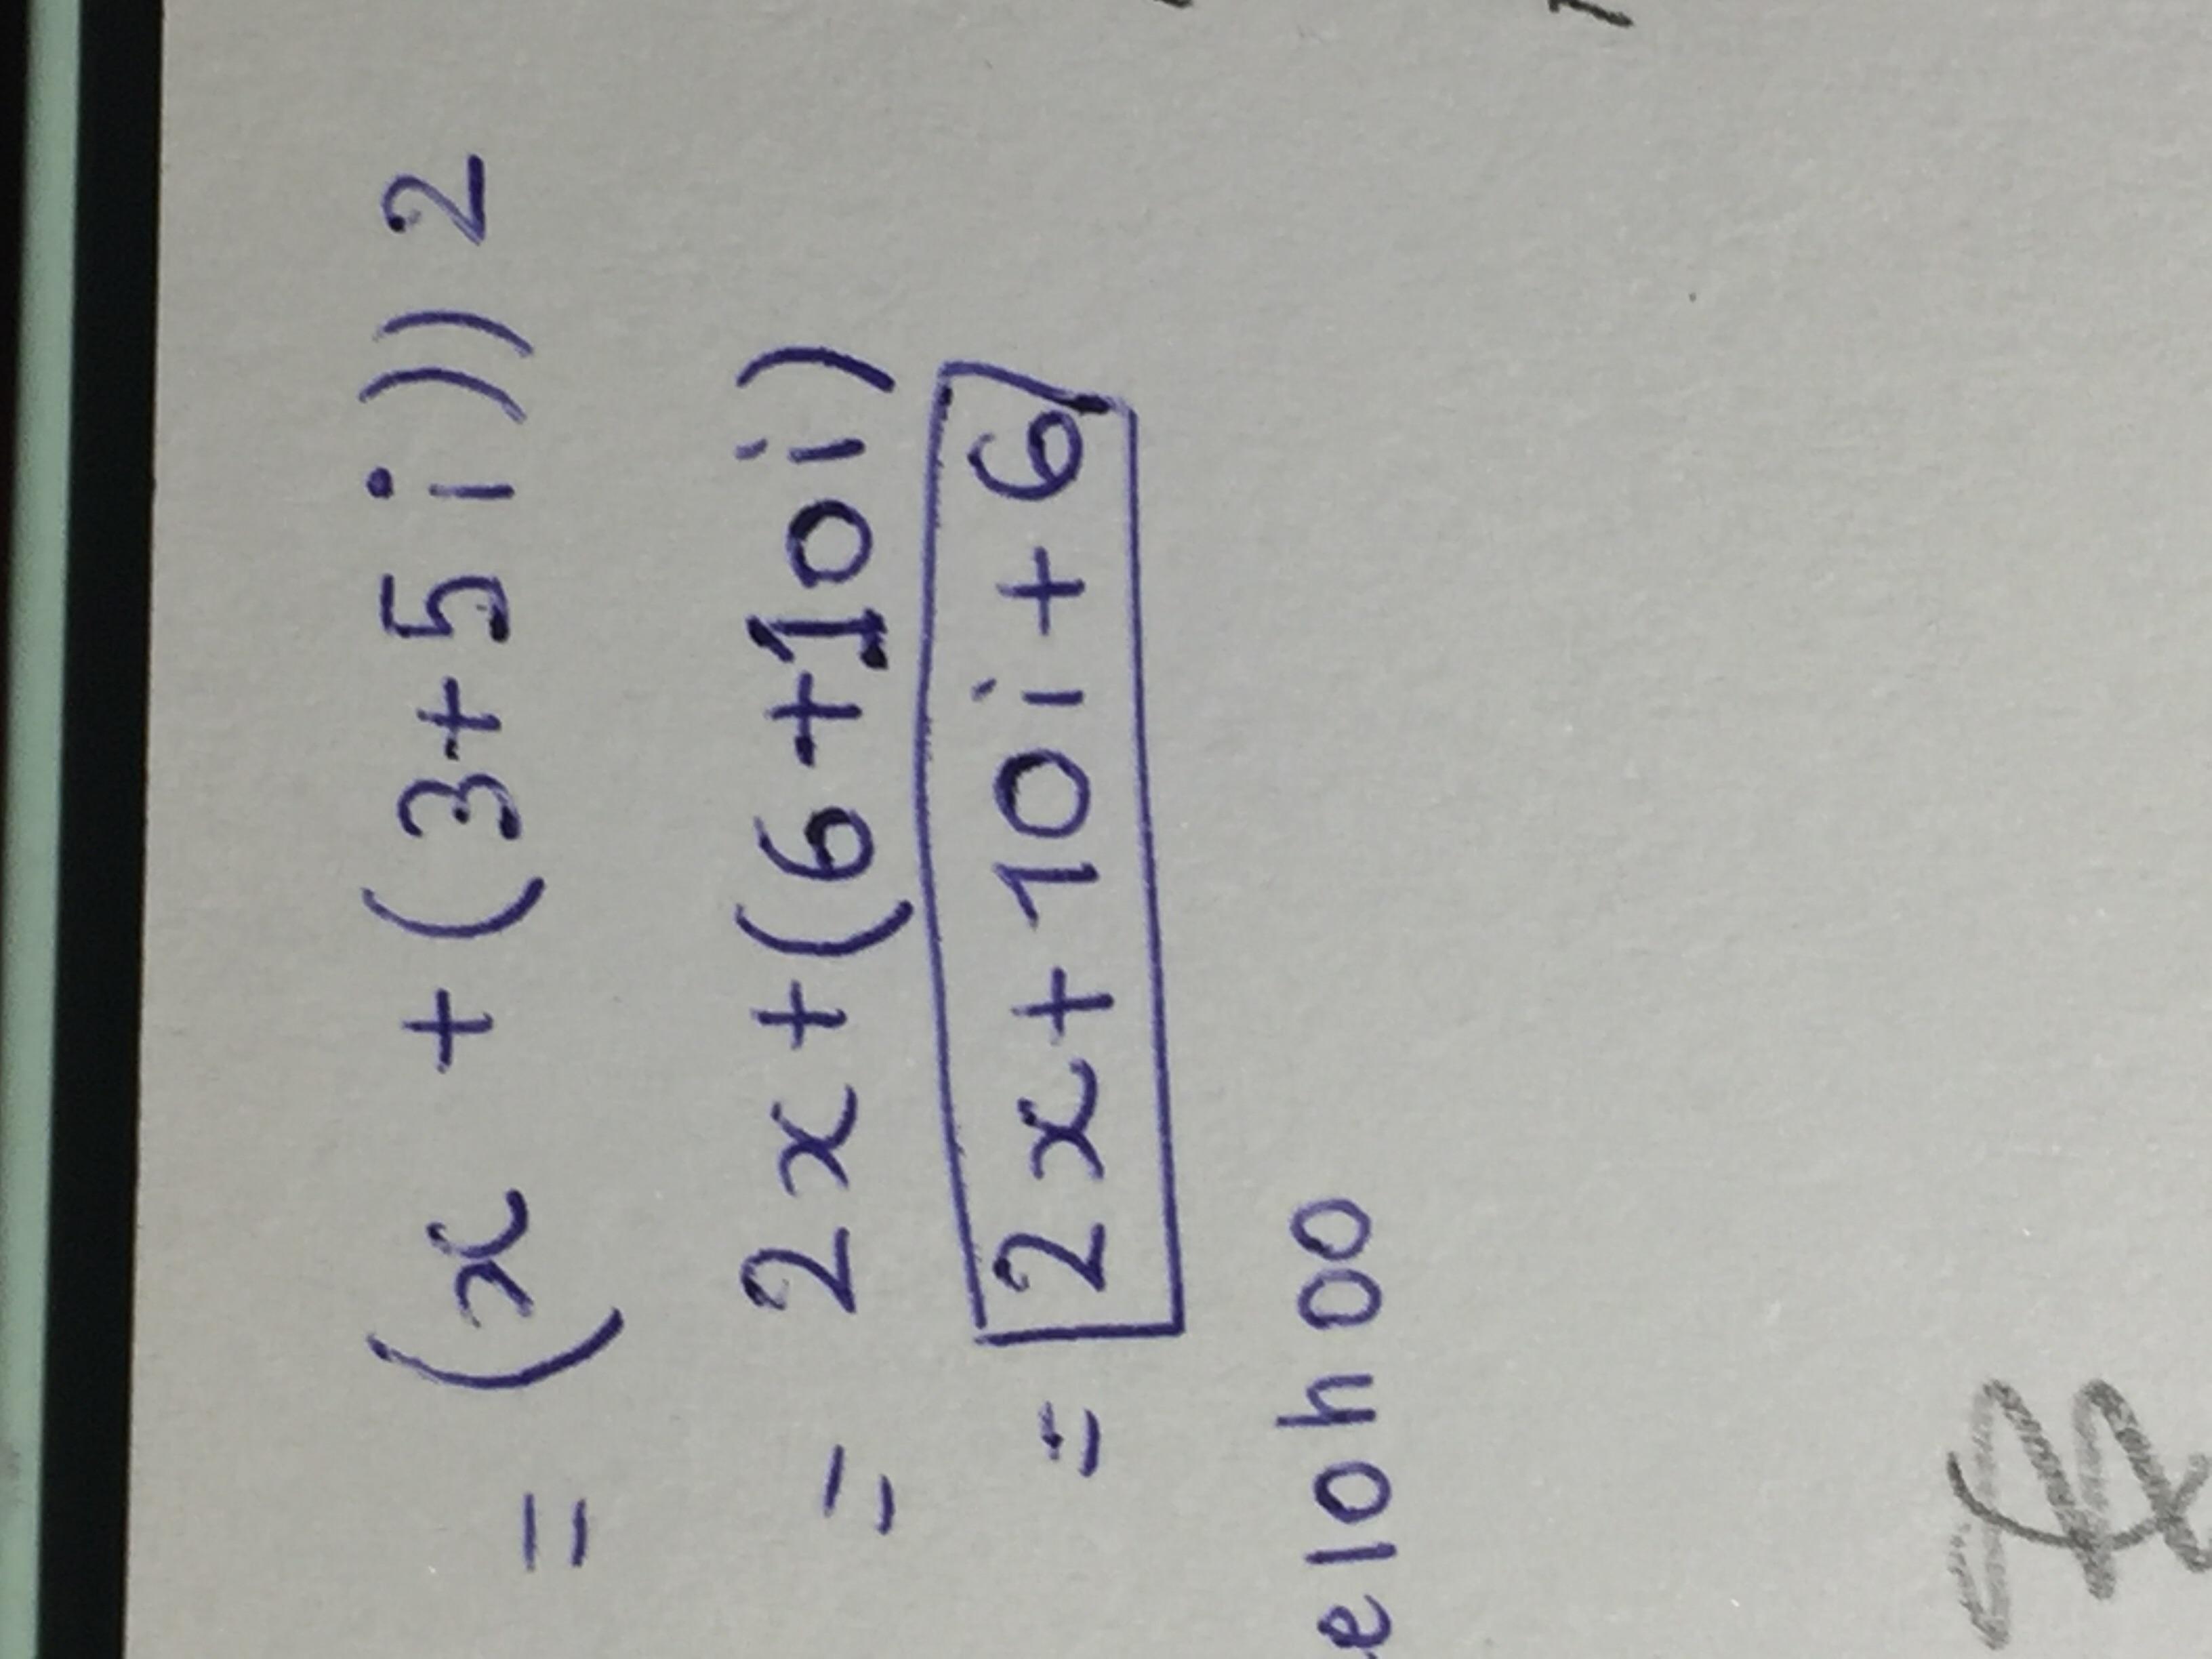 = (x + (3+5i))2
= 2x+(6+10i)
= 2x+10i+6
elohoo